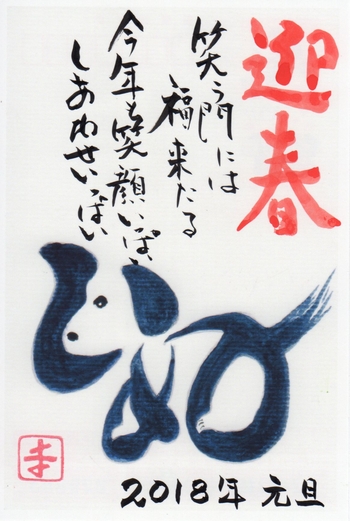 迎春
笑う門には
福来たる
今年も笑顔いっぱい
しあわせいっぱい
いぬ
2018年 元旦